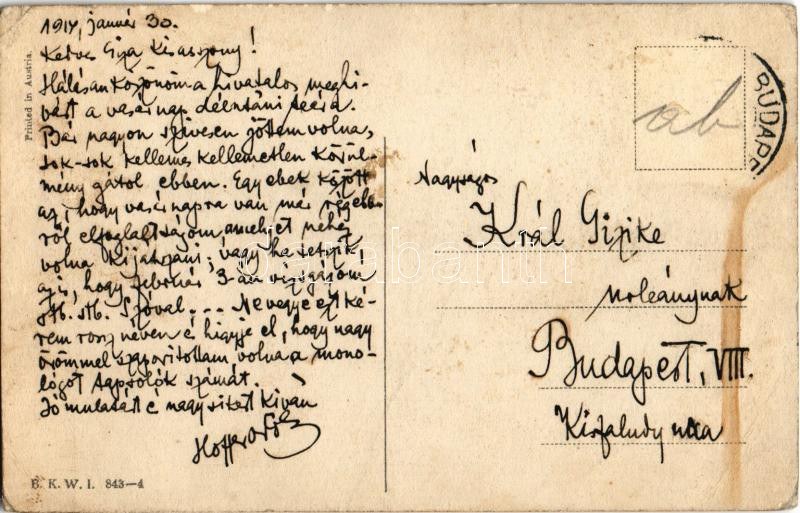 1914, január 30.
Kedves Giza Kisasszony!
Hálásan köszönöm a hivatalos meghí-
vást a vasárnap délutáni teára.
Bár nagyon szívesen jöttem volna,
sok-sok kellemes kellemetlen körül-
mény gátol ebben. Egyebek között
az, hogy vasárnapra van már régeb-
ről elfoglaltságom, amelyet nehéz
volna kijátszani; vagy ha tetszik
az is, hogy február 3-án vizsgázom!
stb. stb. Szóval... Ne vegye ezt ké-
rem rossz néven és higyje el, hogy nagy
örömmel szaporítottam volna a mono-
lógot
számát.
Jó mulatást és nagy sikert kíván
Printed in Austria.
B. K. W. I. 843—4
BUDAPE
ab
Nagyságos
Král Gizike
urleánynak
Budapest, VIII.
Kisfaludy utca